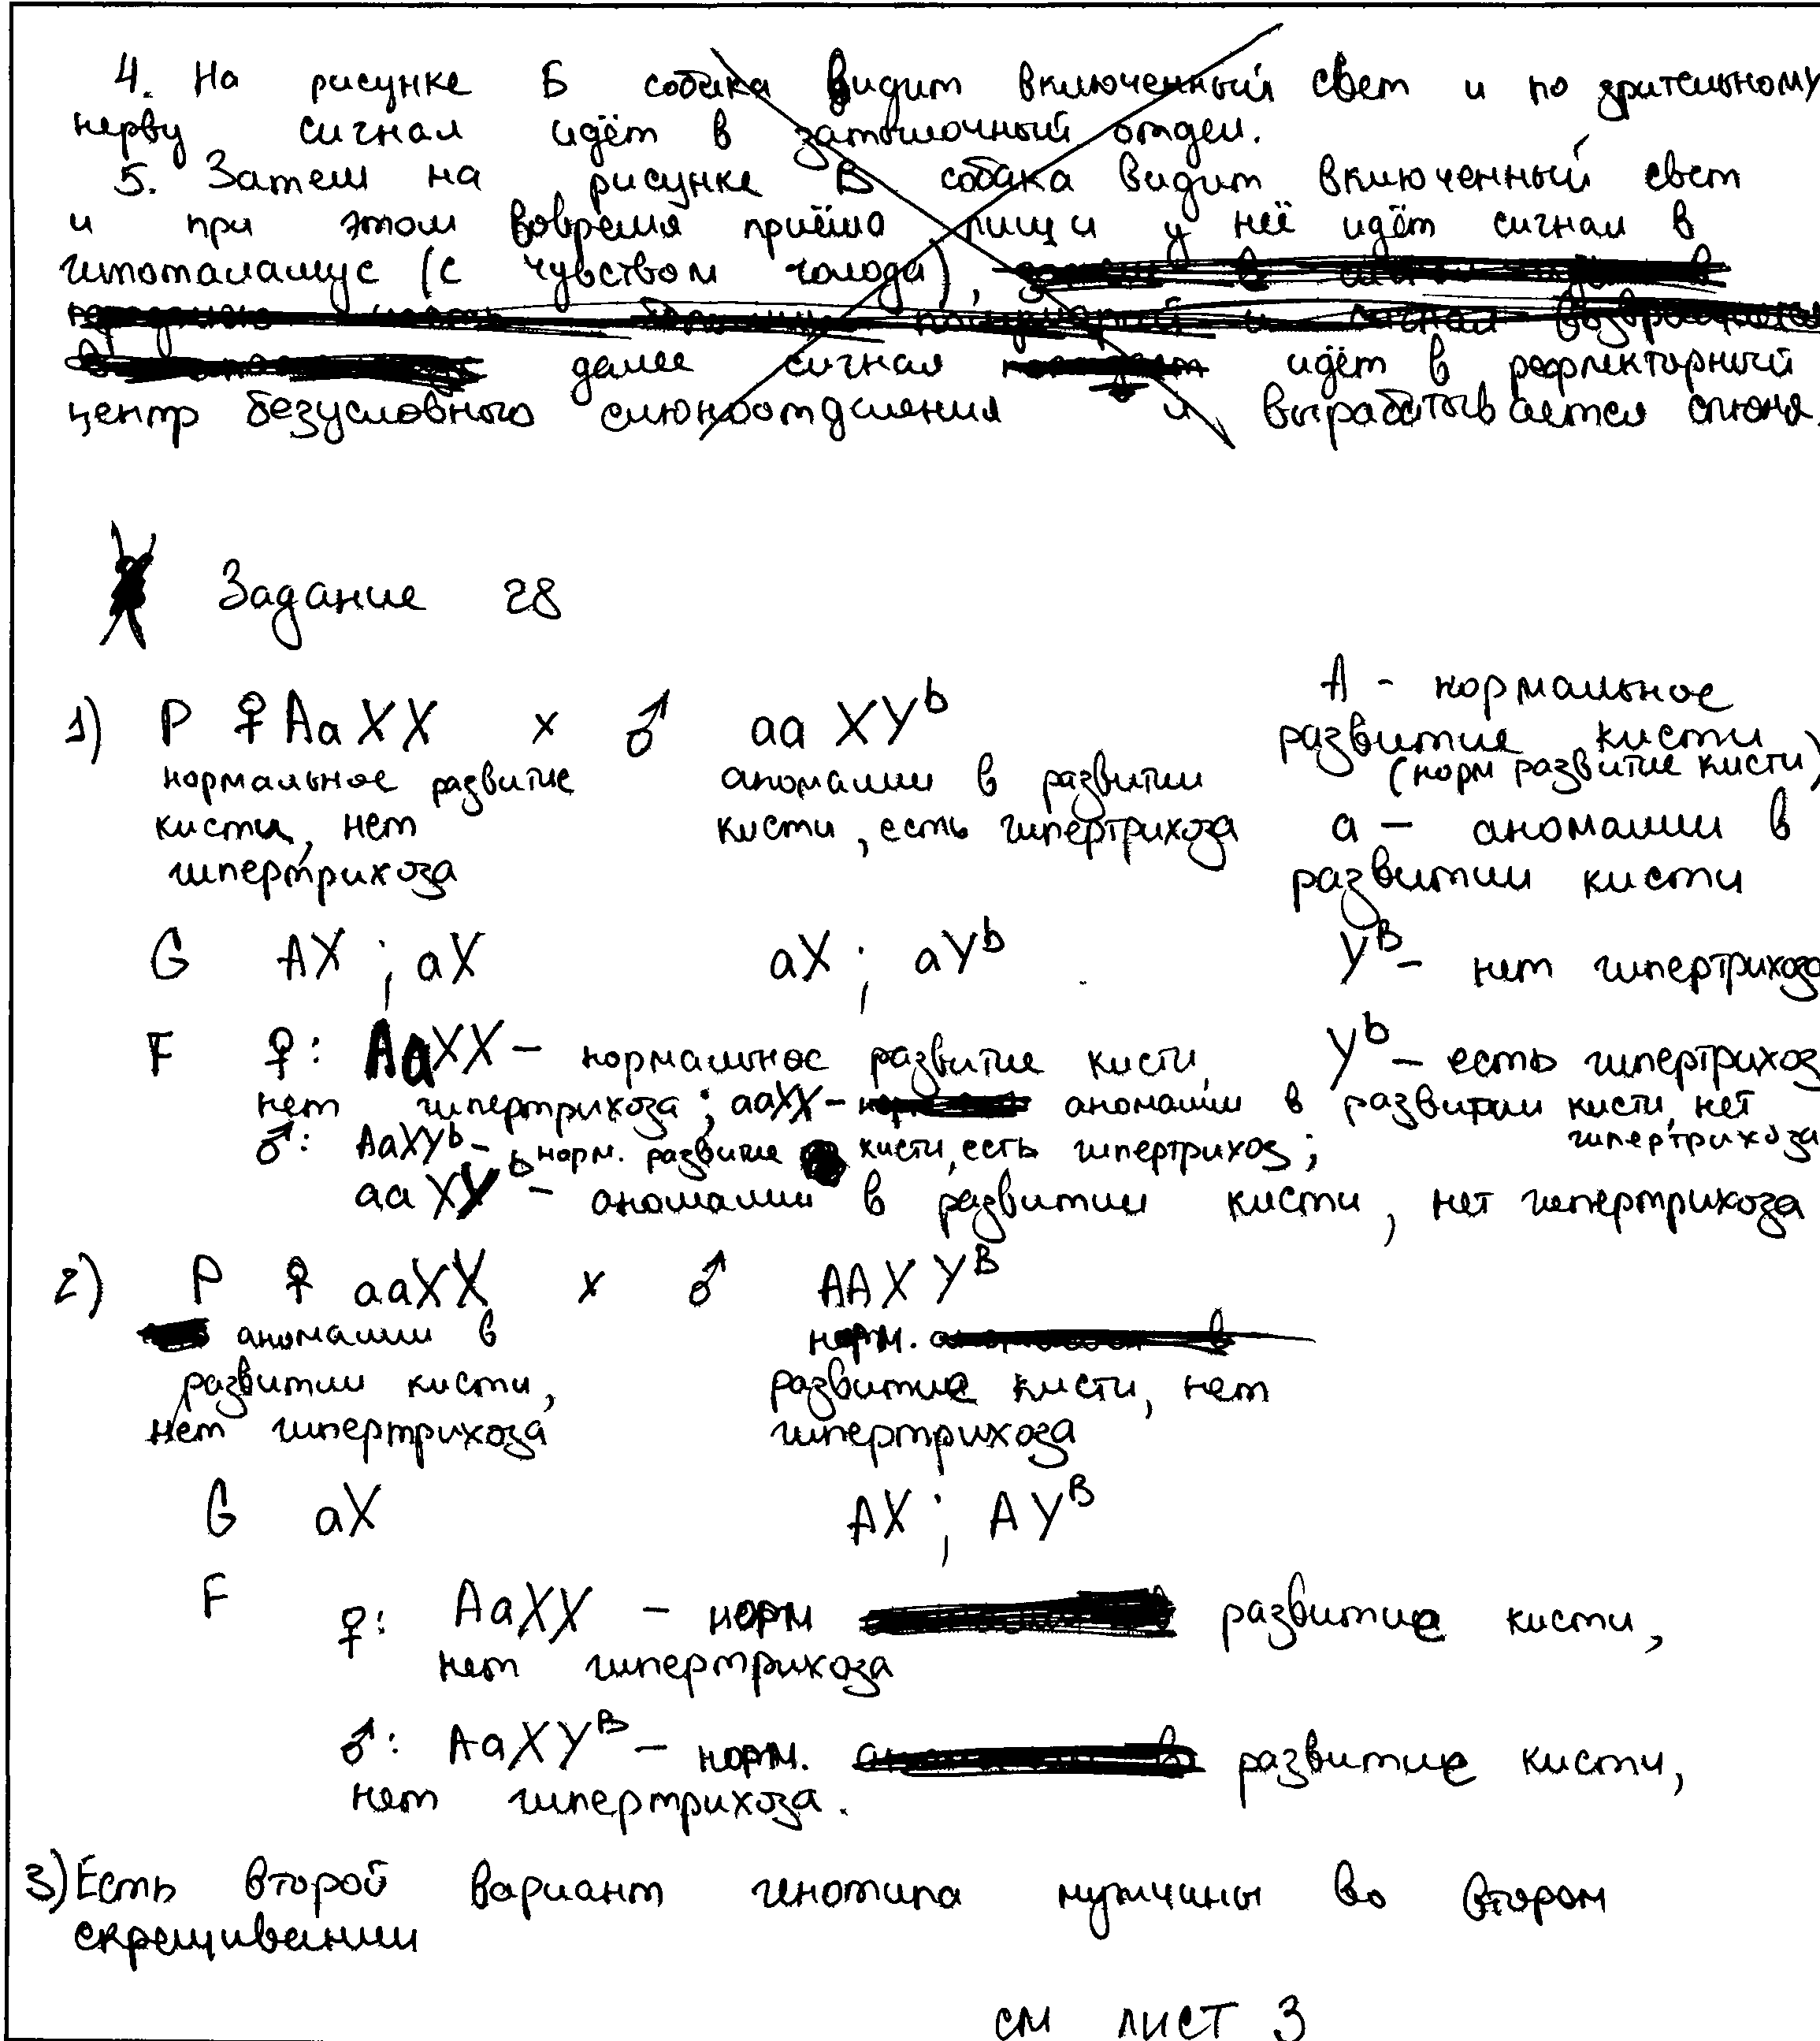 4. На рисунке Б собака видит включенный свет и по зрительному
нерву сигнал идёт в затылочный отдел.
5. Затем на рисунке В собака видит включенный свет
и при этом вовремя приёма пищи у неё идёт сигнал в
гипоталамус (с чувством голода),
далее сигнал идёт в рефлекторный
центр безусловного слюноотделения и вырабатывается слюна.
Задание 28
1) P ♀ AaXX x ♂ aa XYᵇ
A - нормальное
развитие кисти
(норм развитие кисти)
нормальное развитие
кисти, нет
гипертрихоза
аномалии в развитии
кисти, есть гипертрихоза
a - аномалии в
развитии кисти
G AX ; aX aX ; aYᵇ
Yᴮ - нет гипертрихоза
F ♀: AaXX - нормальное развитие кисти,
Yᵇ - есть гипертрихоз
нет гипертрихоза ; aaXX - аномалии в развитии кисти, нет
гипертрихоза
♂: AaXYᵇ - норм. развитие кисти, есть гипертрихоз ;
aa XYᵇ - аномалии в развитии кисти, нет гипертрихоза
2) P ♀ aaXX x ♂ AAXYᴮ
аномалии в
развитии кисти,
нет гипертрихоза
норм.
развитие кисти, нет
гипертрихоза
G aX AX ; AYᴮ
F ♀: AaXX - норм развитие кисти,
нет гипертрихоза
♂: AaXYᴮ - норм. развитие кисти,
нет гипертрихоза.
3) Есть второй вариант генотипа мужчины во втором
скрещивании
см лист 3